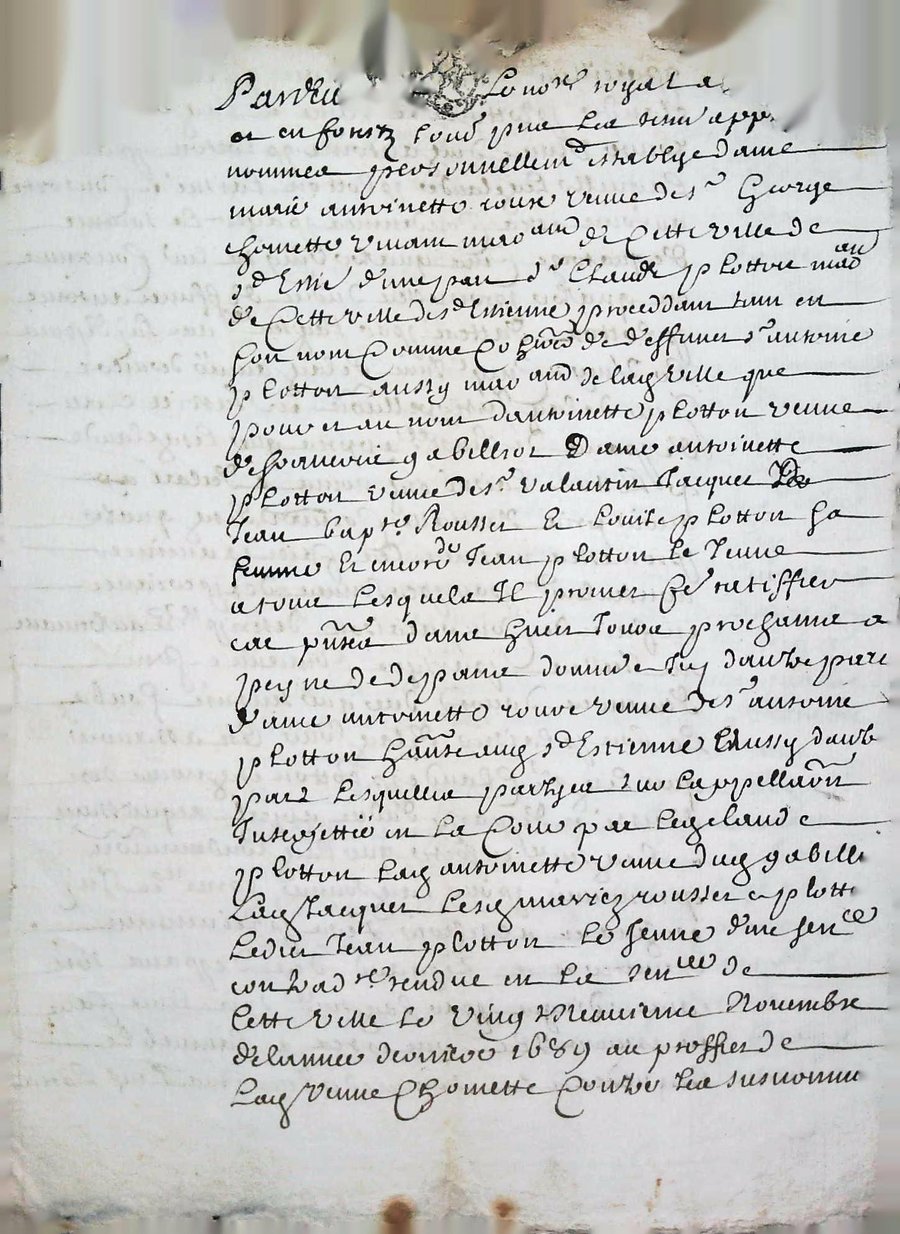 Pardeu Le no.re royal a
et en forestz soub.né les tesm. app
nommes personnellem.t establye dame
marie antoinette roux veuve de s.r George
chomette vivant marchand de Cette ville de
s.t Estie. d'une part s.r Claude plotton march.and
de Cette ville de s.t Estienne proceddant tant en
son nom Comme Coher. de deffunct s.r antoine
plotton aussy marchand de lad. ville que
pour et au nom d'antoinette plotton veuve
de francois gabilliot Dame antoinette
plotton veuve de s.r valantin Jacquet
Jean bap.te Rousset Et Louise plotton sa
femme Et encore Jean plotton le Jeune
a tous lesquels Il promet fe. ratiffier
ces p.ntes dans huict Jours prochains a
peyne de despans dommages Int. d'autre part
dame antoinette roux veuve de s.r antoine
plotton aud. s.t Estienne aussy d'autre
part Lesquelles partyes sur l'appellaon
Interjettee en la Cour par led. Claude
plotton lad. antoinette veuve dud. gabilli
Lad. Jacquet Lesd. mariez rousset et plotto
Ledict Jean plotton le Jeune d'une sen.ce
contrad.re rendue en la sen.cee de
Cette ville le vingt neuvieme Novembre
de l'annee derniere 1689 au proffict de
Lad. veuve Chomette Contre les susnomme